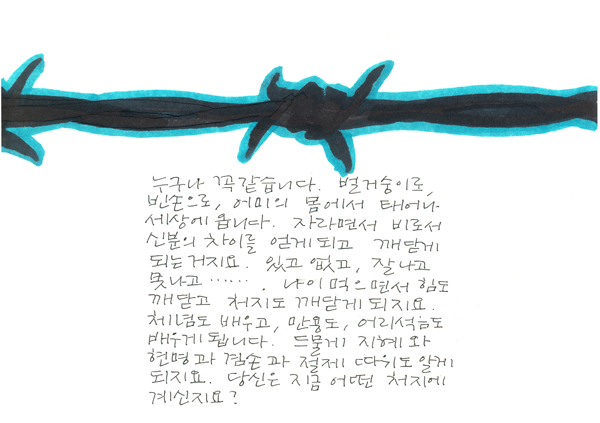 누구나 꼭같습니다. 벌거숭이로,
빈손으로, 어미의 몸에서 태어나
세상에 옵니다. 자라면서 비로서
신분의 차이를 얻게되고 깨닫게
되는거지요. 있고 없고, 잘나고
못나고 ‥‥‥. 나이먹으면서 힘도
깨닫고 처지도 깨닫게되지요.
체념도 배우고, 만용도, 어리석음도
배우게됩니다. 드물게 지혜와
현명과 겸손과 절제 따위도알게
되지요. 당신은 지금 어떤 처지에
계신지요?